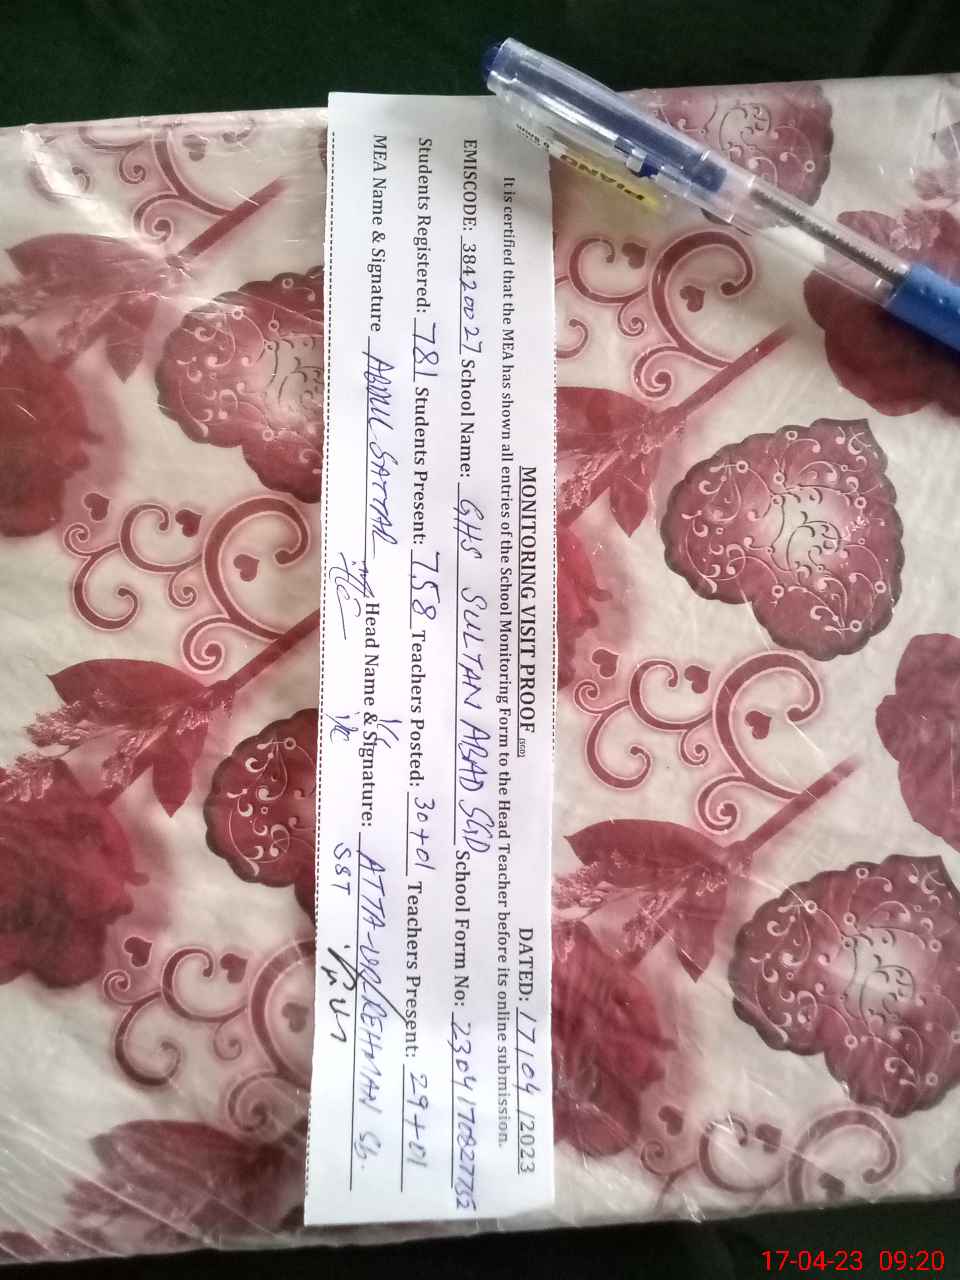 MONITORING VISIT PROOF [SGD] DATED: 17/04/2023
It is certified that the MEA has shown all entries of the School Monitoring Form to the Head Teacher before its online submission.
EMISCODE: 38420027 School Name: GHS SULTAN ABAD SGD School Form No: 2304170827752
Students Registered: 781 Students Present: 758 Teachers Posted: 30+01 Teachers Present: 29+01
MEA Name & Signature ABDUL SATTAR Head Name & Signature: ATTA-UR-REHMAN Sb.
I/C SST
PIANO
17-04-23 09:20